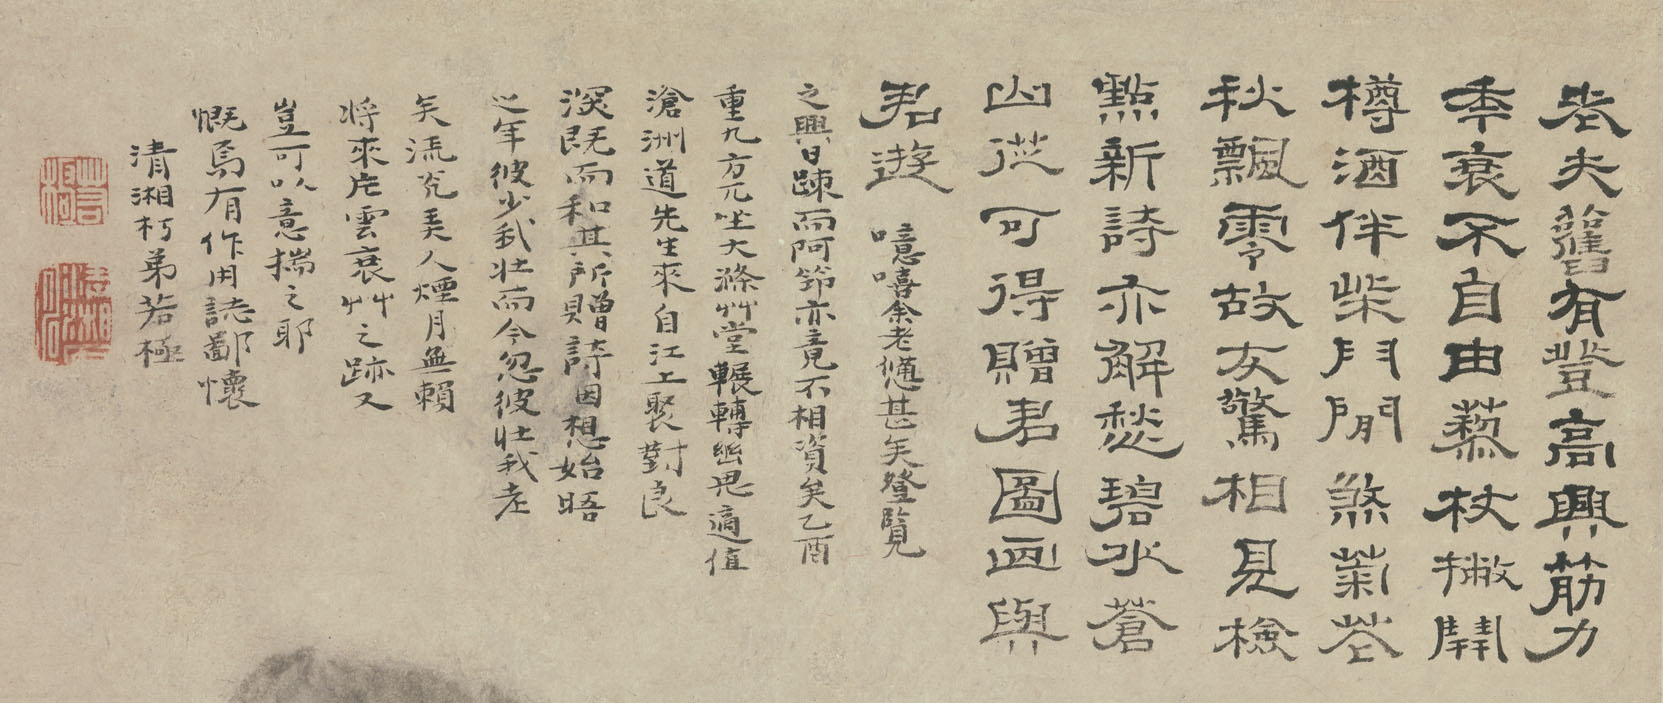 老夫舊有登高興筋力
季衰不自由藜杖撇開
樽酒伴柴門閒煞菊花
秋飄零故友驚相見檢
點新詩亦解愁碧水蒼
山從可得贈君圖画與
君遊 噫嘻余老憊甚矣登覽
之興日疎而阿筇亦竟不相資矣乙酉
重九方兀坐大滌艸堂輾轉幽思適值
滄洲道先生來自江上聚對良
深既而和其所贈詩因想始晤
之年彼少我壯而今忽彼壯我老
矣流光羙人煙月無賴
將來片雲衰艸之跡又
豈可以意揣之耶
慨焉有作用誌鄙懷
清湘朽弟若極